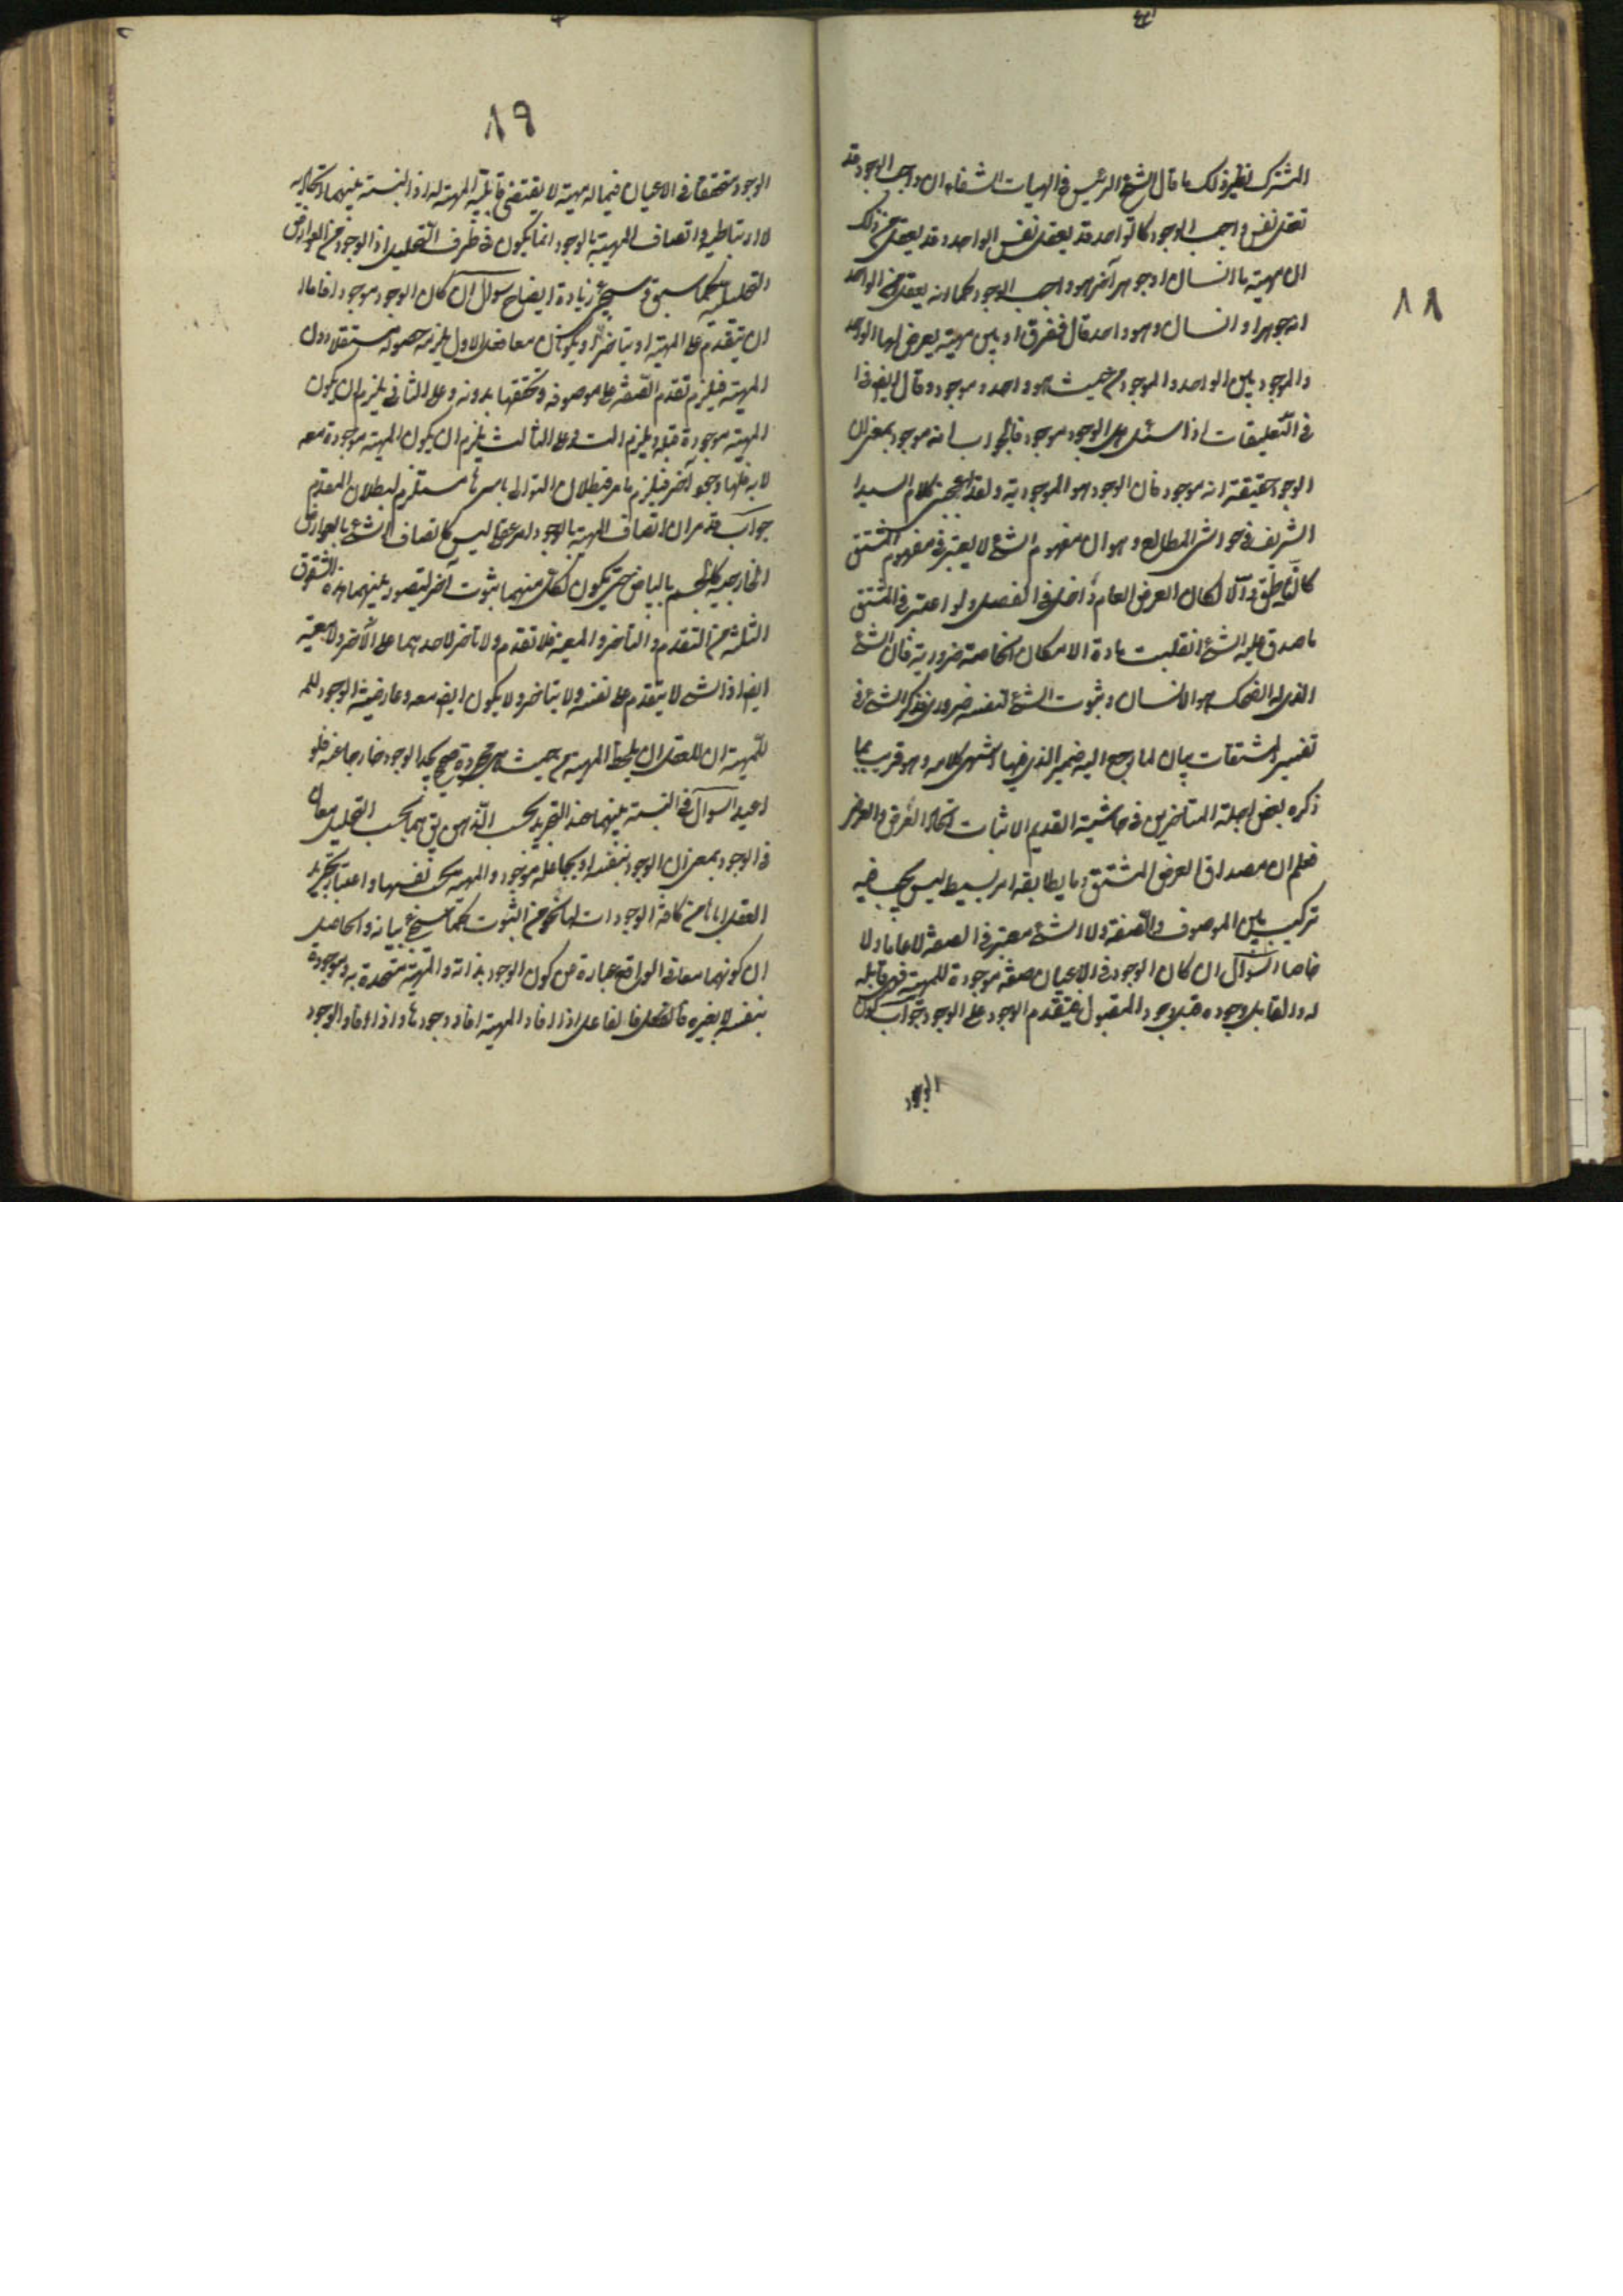 ١٨
المشترك نظير ذلك ما قال الشيخ الرئيس فى الهيات الشفاء ان واجب الوجود قد
تعقل نفس واجب الوجود كالواحد قد يعقل نفس الواحد وقد يعقل من ذلك
ان مهية ما انسان او جوهر آخر هو واجب الوجود كما انه يعقل من الواحد
انه جوهر او انسان وهو واحد قال ففرق اذ بين مهية يعرض لها الواحد
والموجود بين الواحد والموجود من حيث هو واحد وموجود وقال ايضا
فى التعليقات اذا سئل هل الوجود موجود فالجواب انه موجود بمعنى ان
الوجود حقيقته انه موجود فان الوجود هو الموجودية ولقد اعجبنى كلام السيد
الشريف فى حواشى المطالع وهو ان مفهوم الشئ لا يعتبر فى مفهوم المشتق
كالناطق والا لكان العرض العام داخلا فى الفصل ولو اعتبر فى المشتق
ما صدق عليه الشئ انقلبت مادة الامكان الخاصة ضرورية فان الشئ
الذى له الضحك هو الانسان وثبوت الشئ لنفسه ضرورى فذكر الشئ فى
تفسير المشتقات بيان لما رجع اليه ضمير الذى فيها انتهى كلامه وهو قريب مما
ذكره بعض اجلة المتأخرين فى حاشية القديم لاثبات اتحاد العرض والعرضى
فعلم ان مصداق العرض المشتق وما يطابقه امر بسيط ليس يجب فيه
تركيب بين الموصوف والصفة ولا الشئ معتبر فى الصفة لا عاما ولا
خاصا السؤال ان كان الوجود فى الاعيان صفة موجودة للمهية فهى قابلة
له والقابل وجوده قبل وجود المقبول فيتقدم الوجود على الوجود جواب كون
الوجود
١٩
الوجود متحققا فى الاعيان فيما له مهية لا يقتضى قابلية المهية له اذ النسبة بينهما اتحادية
لا ارتباطية واتصاف المهية بالوجود انما يكون فى ظرف التحليل اذ الوجود من العوارض
التحليلية كما سبق وسيجئ زيادة ايضاح سؤال ان كان الوجود موجودا فاما
ان يتقدم على المهية او يتاخر او يكونان معا فعلى الاول يلزم حصوله مستقلا دون
المهية فيلزم تقدم الصفة على موصوفه وتحققها بدونه وعلى الثانى يلزم ان يكون
المهية موجودة قبله ويلزم التس وعلى الثالث يلزم ان يكون المهية موجودة معه
لا به فلها وجود آخر فيلزم ما مر فبطلان التوالى باسرها مستلزم لبطلان المقدم
جواب قد مر ان اتصاف المهية بالوجود امر عقلى ليس كاتصاف الشئ بالعوارض
الخارجية كالجسم بالبياض حتى يكون لكل منهما ثبوت آخر ليتصور بينهما هذه الشقوق
الثلثة من التقدم والتأخر والمعية فلا تقدم ولا تأخر لاحدهما على الآخر ولا معية
ايضا اذ الشئ لا يتقدم على نفسه ولا يتاخر ولا يكون ايضا معه وعارضية الوجود للم
للمهية ان للعقل ان يلحظ المهية من حيث هى مجردة حتى يجد الوجود خارجا عنه فلو
اعيد السؤال فى النسبة بينهما عند التجريد بحسب الذهن يق هما بحسب التحليل معان
فى الوجود بمعنى ان الوجود بنفسه او بجاعله موجود والمهية بحسب نفسها واعتبار تجريد
العقل اياها من كافة الوجودات لها نحو من الثبوت كما سيجئ بيانه والحاصل
ان كونهما معا فى الواقع عبارة من كون الوجود بذاته والمهية متحدة به وموجودة
بنفسه لا بغيره فالفاعل اذا افاد المهية افاد وجودها واذا افاد الوجود